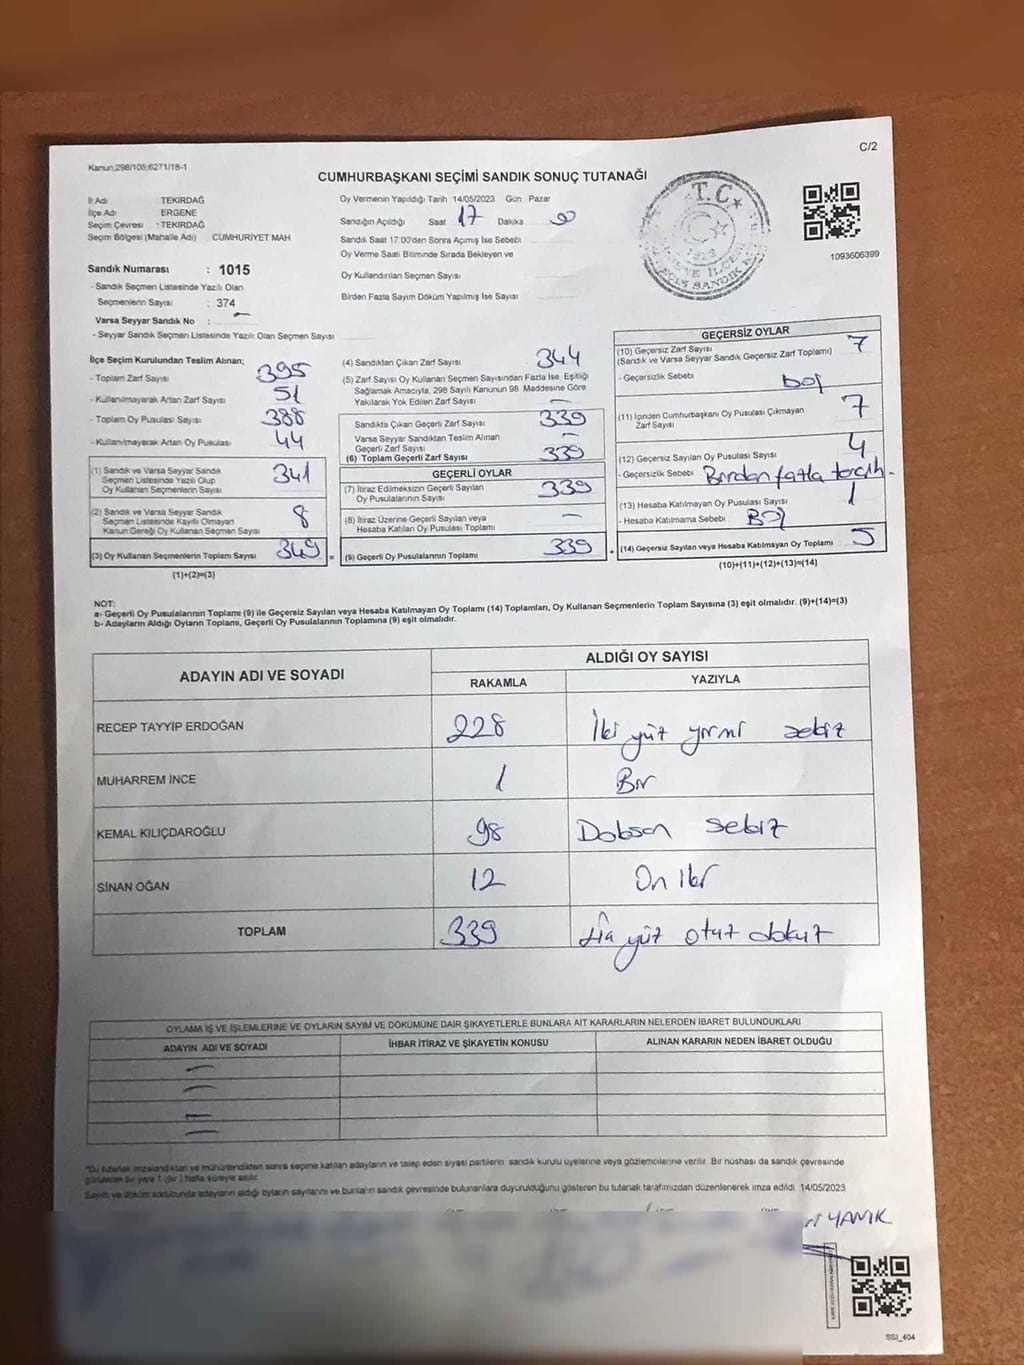 C/2
Kanun:298/105;6271/18-1
CUMHURBAŞKANI SEÇİMİ SANDIK SONUÇ TUTANAĞI
İl Adı TEKİRDAĞ
İlçe Adı ERGENE
Seçim Çevresi : TEKİRDAĞ
Seçim Bölgesi (Mahalle Adı) CUMHURİYET MAH
Oy Vermenin Yapıldığı Tarih 14/05/2023 Gün Pazar
Sandığın Açıldığı Saat 17 Dakika
Sandık Saat 17.00'den Sonra Açılmış İse Sebebi
Oy Verme Saati Bitiminde Sırada Bekleyen ve
Oy Kullandırılan Seçmen Sayısı
Birden Fazla Sayım Döküm Yapılmış İse Sayısı
T.C.
1093606399
Sandık Numarası : 1015
- Sandık Seçmen Listesinde Yazılı Olan
Seçmenlerin Sayısı : 374
Varsa Seyyar Sandık No : -
- Seyyar Sandık Seçmen Listesinde Yazılı Olan Seçmen Sayısı
İlçe Seçim Kurulundan Teslim Alınan;
- Toplam Zarf Sayısı 395
- Kullanılmayarak Artan Zarf Sayısı 51
- Toplam Oy Pusulası Sayısı 388
- Kullanılmayarak Artan Oy Pusulası 44
(1) Sandık ve Varsa Seyyar Sandık
Seçmen Listesinde Yazılı Olup
Oy Kullanan Seçmenlerin Sayısı 341
(2) Sandık ve Varsa Seyyar Sandık
Seçmen Listesinde Kayıtlı Olmayan
Kanun Gereği Oy Kullanan Seçmen Sayısı 8
(3) Oy Kullanan Seçmenlerin Toplam Sayısı 349 =
(1)+(2)=(3)
(4) Sandıktan Çıkan Zarf Sayısı 344
(5) Zarf Sayısı Oy Kullanan Seçmen Sayısından Fazla İse, Eşitliği
Sağlamak Amacıyla, 298 Sayılı Kanunun 98. Maddesine Göre
Yakılarak Yok Edilen Zarf Sayısı -
Sandıkta Çıkan Geçerli Zarf Sayısı 339
Varsa Seyyar Sandıktan Teslim Alınan
Geçerli Zarf Sayısı -
(6) Toplam Geçerli Zarf Sayısı 339
GEÇERLİ OYLAR
(7) İtiraz Edilmeksizin Geçerli Sayılan
Oy Pusulalarının Sayısı 339
(8) İtiraz Üzerine Geçerli Sayılan veya
Hesaba Katılan Oy Pusulası Toplamı -
(9) Geçerli Oy Pusulalarının Toplamı 339 +
GEÇERSİZ OYLAR
(10) Geçersiz Zarf Sayısı 7
(Sandık ve Varsa Seyyar Sandık Geçersiz Zarf Toplamı)
- Geçersizlik Sebebi boş
(11) İçinden Cumhurbaşkanı Oy Pusulası Çıkmayan
Zarf Sayısı 7
(12) Geçersiz Sayılan Oy Pusulası Sayısı 4
- Geçersizlik Sebebi Birden fazla tercih -
(13) Hesaba Katılmayan Oy Pusulası Sayısı 1
- Hesaba Katılmama Sebebi Boş
(14) Geçersiz Sayılan veya Hesaba Katılmayan Oy Toplamı 5
(10)+(11)+(12)+(13)=(14)
NOT:
a- Geçerli Oy Pusulalarının Toplamı (9) ile Geçersiz Sayılan veya Hesaba Katılmayan Oy Toplamı (14) Toplamları, Oy Kullanan Seçmenlerin Toplam Sayısına (3) eşit olmalıdır. (9)+(14)=(3)
b- Adayların Aldığı Oyların Toplamı, Geçerli Oy Pusulalarının Toplamına (9) eşit olmalıdır.
ADAYIN ADI VE SOYADI ALDIĞI OY SAYISI
RAKAMLA YAZIYLA
RECEP TAYYİP ERDOĞAN 228 İki yüz yirmi sekiz
MUHARREM İNCE 1 Bir
KEMAL KILIÇDAROĞLU 98 Doksan sekiz
SİNAN OĞAN 12 On iki
TOPLAM 339 yüz otuz dokuz
OYLAMA İŞ VE İŞLEMLERİNE VE OYLARIN SAYIM VE DÖKÜMÜNE DAİR ŞİKAYETLERLE BUNLARA AİT KARARLARIN NELERDEN İBARET BULUNDUKLARI
ADAYIN ADI VE SOYADI İHBAR İTİRAZ VE ŞİKAYETİN KONUSU ALINAN KARARIN NEDEN İBARET OLDUĞU
"Bu tutanak imzalandıktan ve mühürlendikten sonra seçime katılan adayların ve talep eden siyasi partilerin sandık kurulu üyelerine veya gözlemcilerine verilir. Bir nüshası da sandık çevresinde
görülecek bir yere 1 (bir) hafta süreyle asılır.
Sayım ve döküm sonucunda adayların aldığı oyların sayılarını ve bunların sandık çevresinde bulunanlara duyurulduğunu gösteren bu tutanak tarafımızdan düzenlenerek imza edildi. 14/05/2023
YANIK
SSİ_404